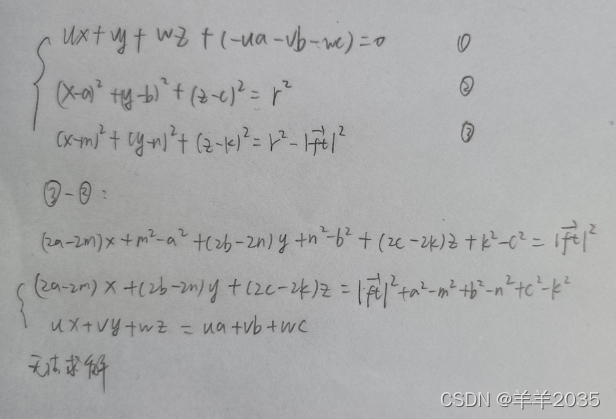 ux+vy+wz+(-ua-vb-wc)=0 ①
(x-a)²+(y-b)²+(z-c)²=r² ②
(x-m)²+(y-n)²+(z-k)²=r²-|ft⃗|² ③
③-②:
(2a-2m)x+m²-a²+(2b-2n)y+n²-b²+(2c-2k)z+k²-c²=|ft⃗|²
(2a-2m)x+(2b-2n)y+(2c-2k)z=|ft⃗|²+a²-m²+b²-n²+c²-k²
ux+vy+wz=ua+vb+wc
无法求解
CSDN @羊羊2035